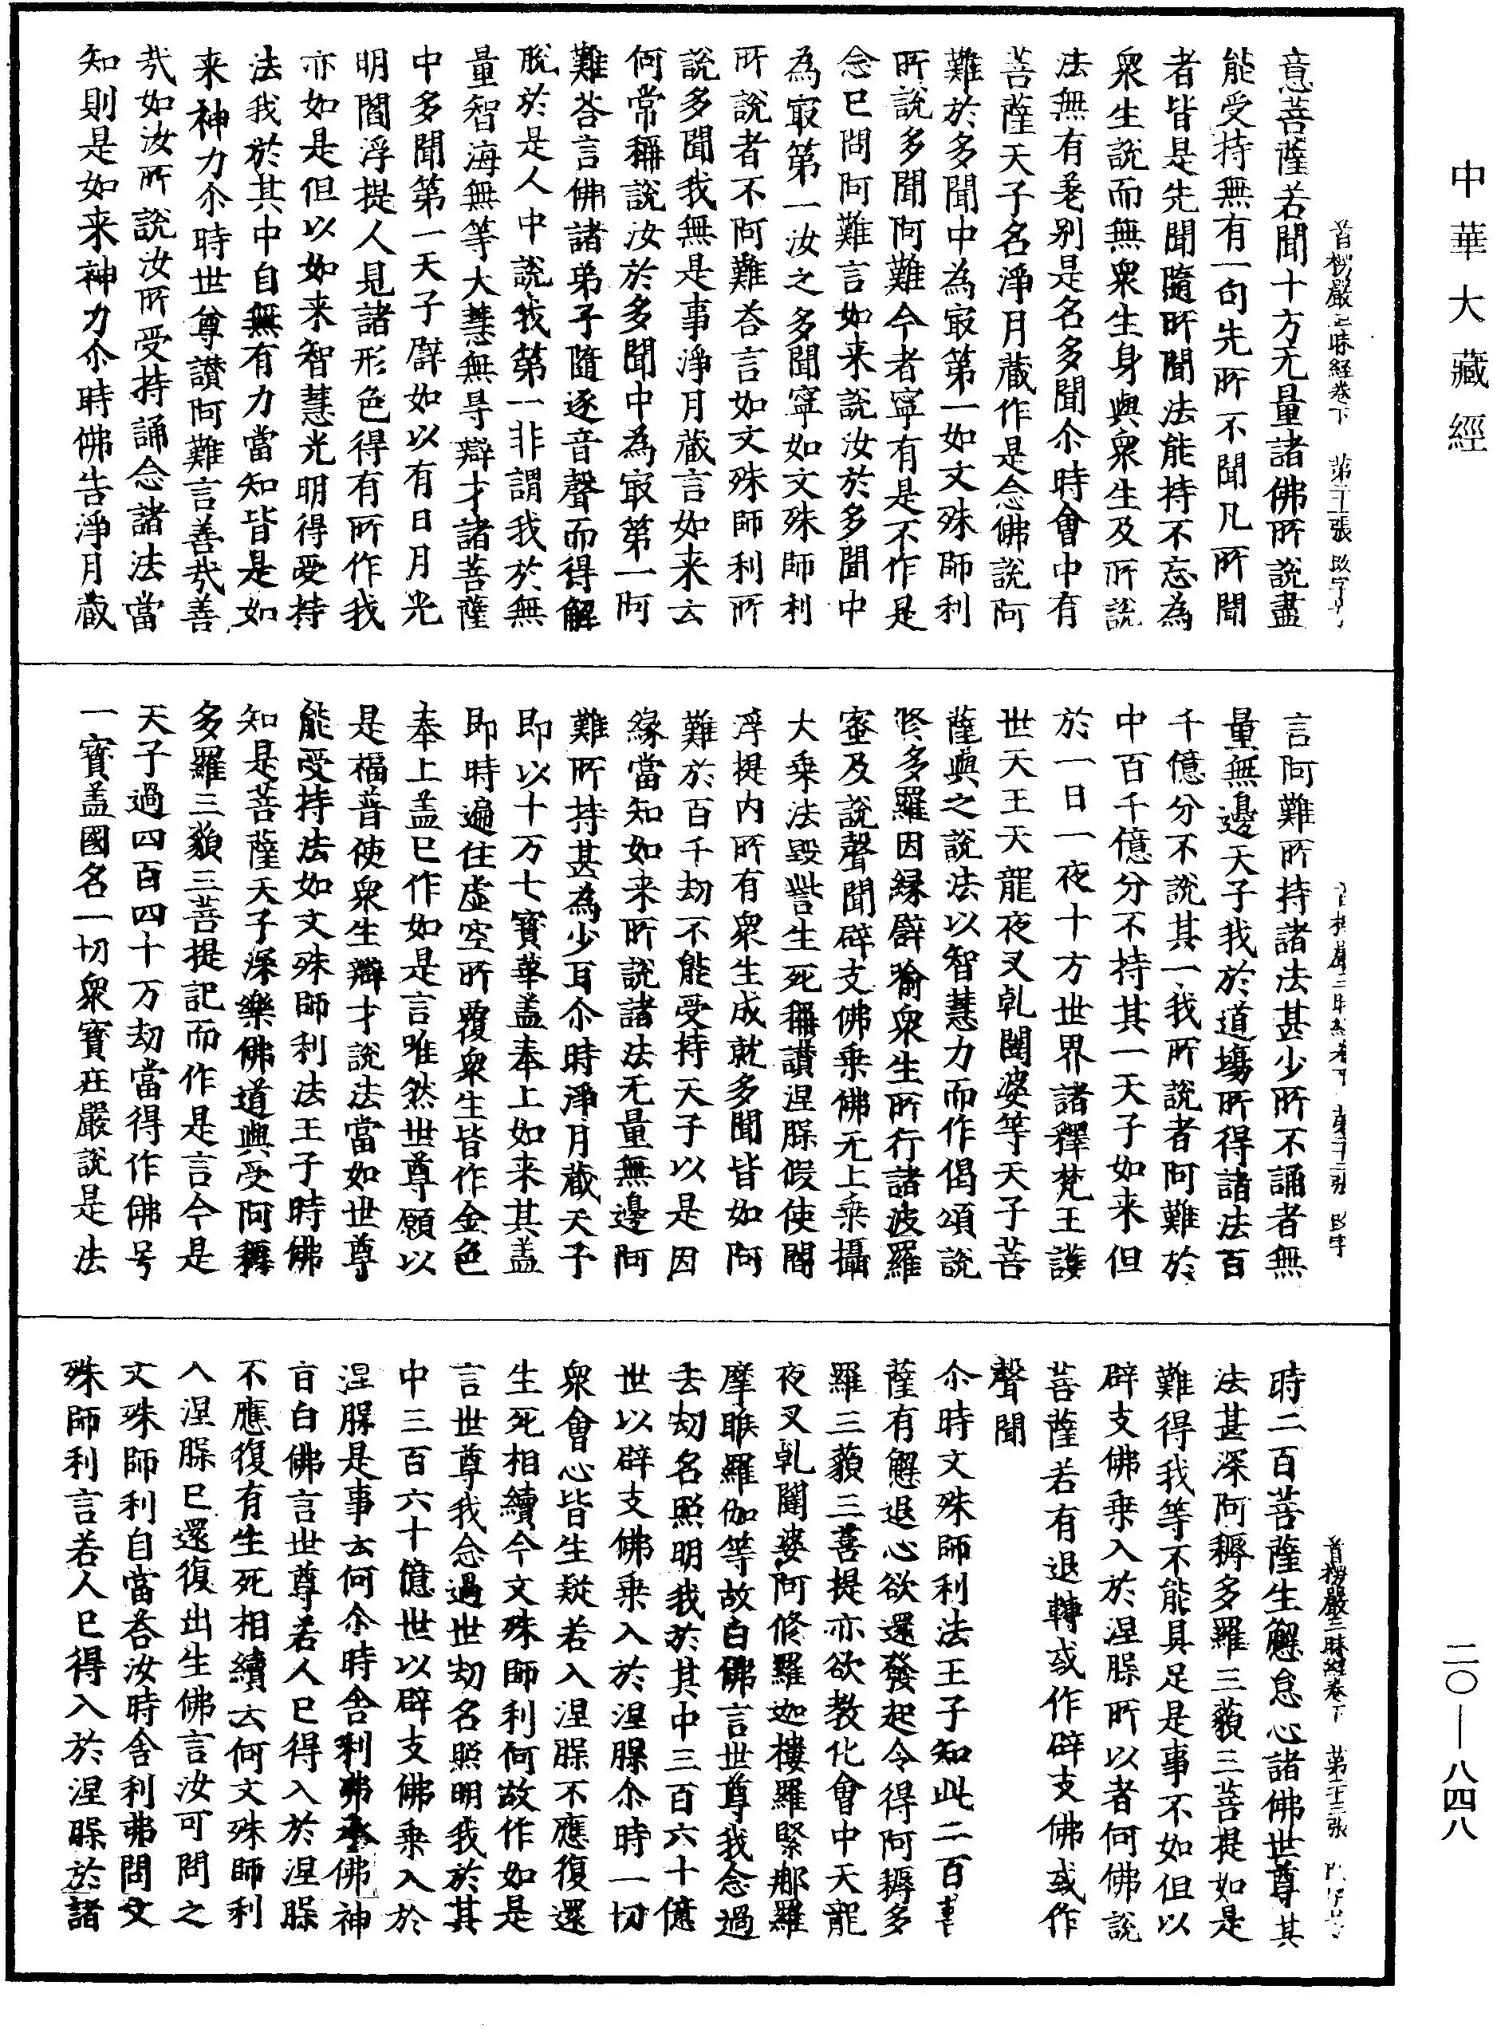 中華大藏經
首楞嚴三昧經卷下 第二十一張
意菩薩若聞十方无量諸佛所說盡
能受持無有一句先所不聞凡所聞
者皆是先聞隨所聞法能持不忘為
眾生說而無眾生身與眾生及所說
法無有差別是名多聞尒時會中有
菩薩天子名淨月藏作是念佛說阿
難於多聞中為冣第一如文殊師利
所說多聞阿難今者寧有是不作是
念已問阿難言如来說汝於多聞中
為冣第一汝之多聞寧如文殊師利
所說者不阿難荅言如文殊師利所
說多聞我無是事淨月藏言如来云
何常稱說汝於多聞中為冣第一阿
難荅言佛諸弟子隨逐音聲而得解
脫於是人中說我第一非謂我於無
量智海無等大慧無㝵辯才諸菩薩
中多聞第一天子譬如以有日月光
明閻浮提人見諸形色得有所作我
亦如是但以如来智慧光明得受持
法我於其中自無有力當知皆是如
来神力尒時世尊讚阿難言善㦲善
㦲如汝所說汝所受持誦念諸法當
知則是如来神力尒時佛告淨月藏
首楞嚴三昧經卷下 第二十二張
言阿難所持諸法甚少所不誦者無
量無邊天子我於道場所得諸法百
千億分不說其一我所說者阿難於
中百千億分不持其一天子如来但
於一日一夜十方世界諸釋梵王護
世天王天龍夜叉乹闥婆等天子菩
薩與之說法以智慧力而作偈頌說
修多羅因緣譬喻眾生所行諸波羅
蜜及說聲聞辟支佛乘佛无上乘攝
大乘法毀呰生死稱讚涅䐺假使閻
浮提內所有眾生成就多聞皆如阿
難於百千劫不能受持天子以是因
緣當知如来所說諸法无量無邊阿
難所持甚為少耳尒時淨月藏天子
即以十万七寶華盖奉上如来其盖
即時遍住虛空所覆眾生皆作金色
奉上盖已作如是言唯然世尊願以
是福普使眾生辯才說法當如世尊
能受持法如文殊師利法王子時佛
知是菩薩天子深樂佛道與受阿耨
多羅三藐三菩提記而作是言今是
天子過四百四十万劫當得作佛号
一寶盖國名一切眾寶莊嚴說是法
首楞嚴三昧經卷下 第二十三張
時二百菩薩生懈怠心諸佛世尊其
法甚深阿耨多羅三藐三菩提如是
難得我等不能具足是事不如但以
辟支佛乘入於涅䐺所以者何佛說
菩薩若有退轉或作辟支佛或作
聲聞
尒時文殊師利法王子知此二百菩
薩有懈退心欲還發起令得阿耨多
羅三藐三菩提亦欲教化會中天龍
夜叉乹闥婆阿修羅迦樓羅緊那羅
摩睺羅伽等故白佛言世尊我念過
去劫名照明我於其中三百六十億
世以辟支佛乘入於涅䐺尒時一切
眾會心皆生疑若入涅䐺不應復還
生死相續今文殊師利何故作如是
言世尊我念過世劫名照明我於其
中三百六十億世以辟支佛乘入於
涅䐺是事云何尒時舍利弗承佛神
旨白佛言世尊若人已得入於涅䐺
不應復有生死相續云何文殊師利
入涅䐺已還復出生佛言汝可問之
文殊師利自當荅汝時舍利弗問文
殊師利言若人已得入於涅䐺於諸
二〇—八四八